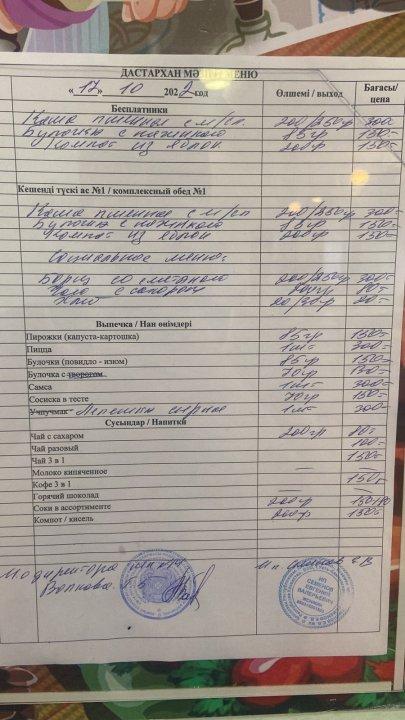 ДАСТАРХАН МӘЗІРІ/МЕНЮ
«17» 10 2022 год Өлшемі / выход Бағасы/ цена
Бесплатники
Каша пшенная с м/сл 200/250гр 300=
Булочка с 85гр 150=
Компот из яблок 200гр 150=
Кешенді түскі ас №1 / комплексный обед №1
Каша пшенная с м/сл 200/250гр 300=
Булочка с 85гр 150=
Компот из яблок 200гр 150=
Социальное меню:
Борщ со сметаной 200/250гр 300=
Чай с сахаром 200гр 80=
Хлеб 20=
Выпечка / Нан өнімдері
Пирожки (капуста-картошка) 85гр 150=
Пицца 1шт= 300=
Булочки (повидло - изюм) 85гр 150=
Булочка с творогом 70гр 150=
Самса 1шт= 300=
Сосиска в тесте 70гр 150=
Учпучмак Лепешки сырные 1шт= 200=
Сусындар / Напитки
Чай с сахаром 200гр 80=
Чай разовый 100=
Чай 3 в 1 150=
Молоко кипяченное — —
Кофе 3 в 1 150=
Горячий шоколад — —
Соки в ассортименте 200гр
Компот / кисель 200гр 150=
директора школы
Волкова
ИП
СЕМЕНОВ
ЕВГЕНИЙ
ВАЛЕРЬЕВИЧ